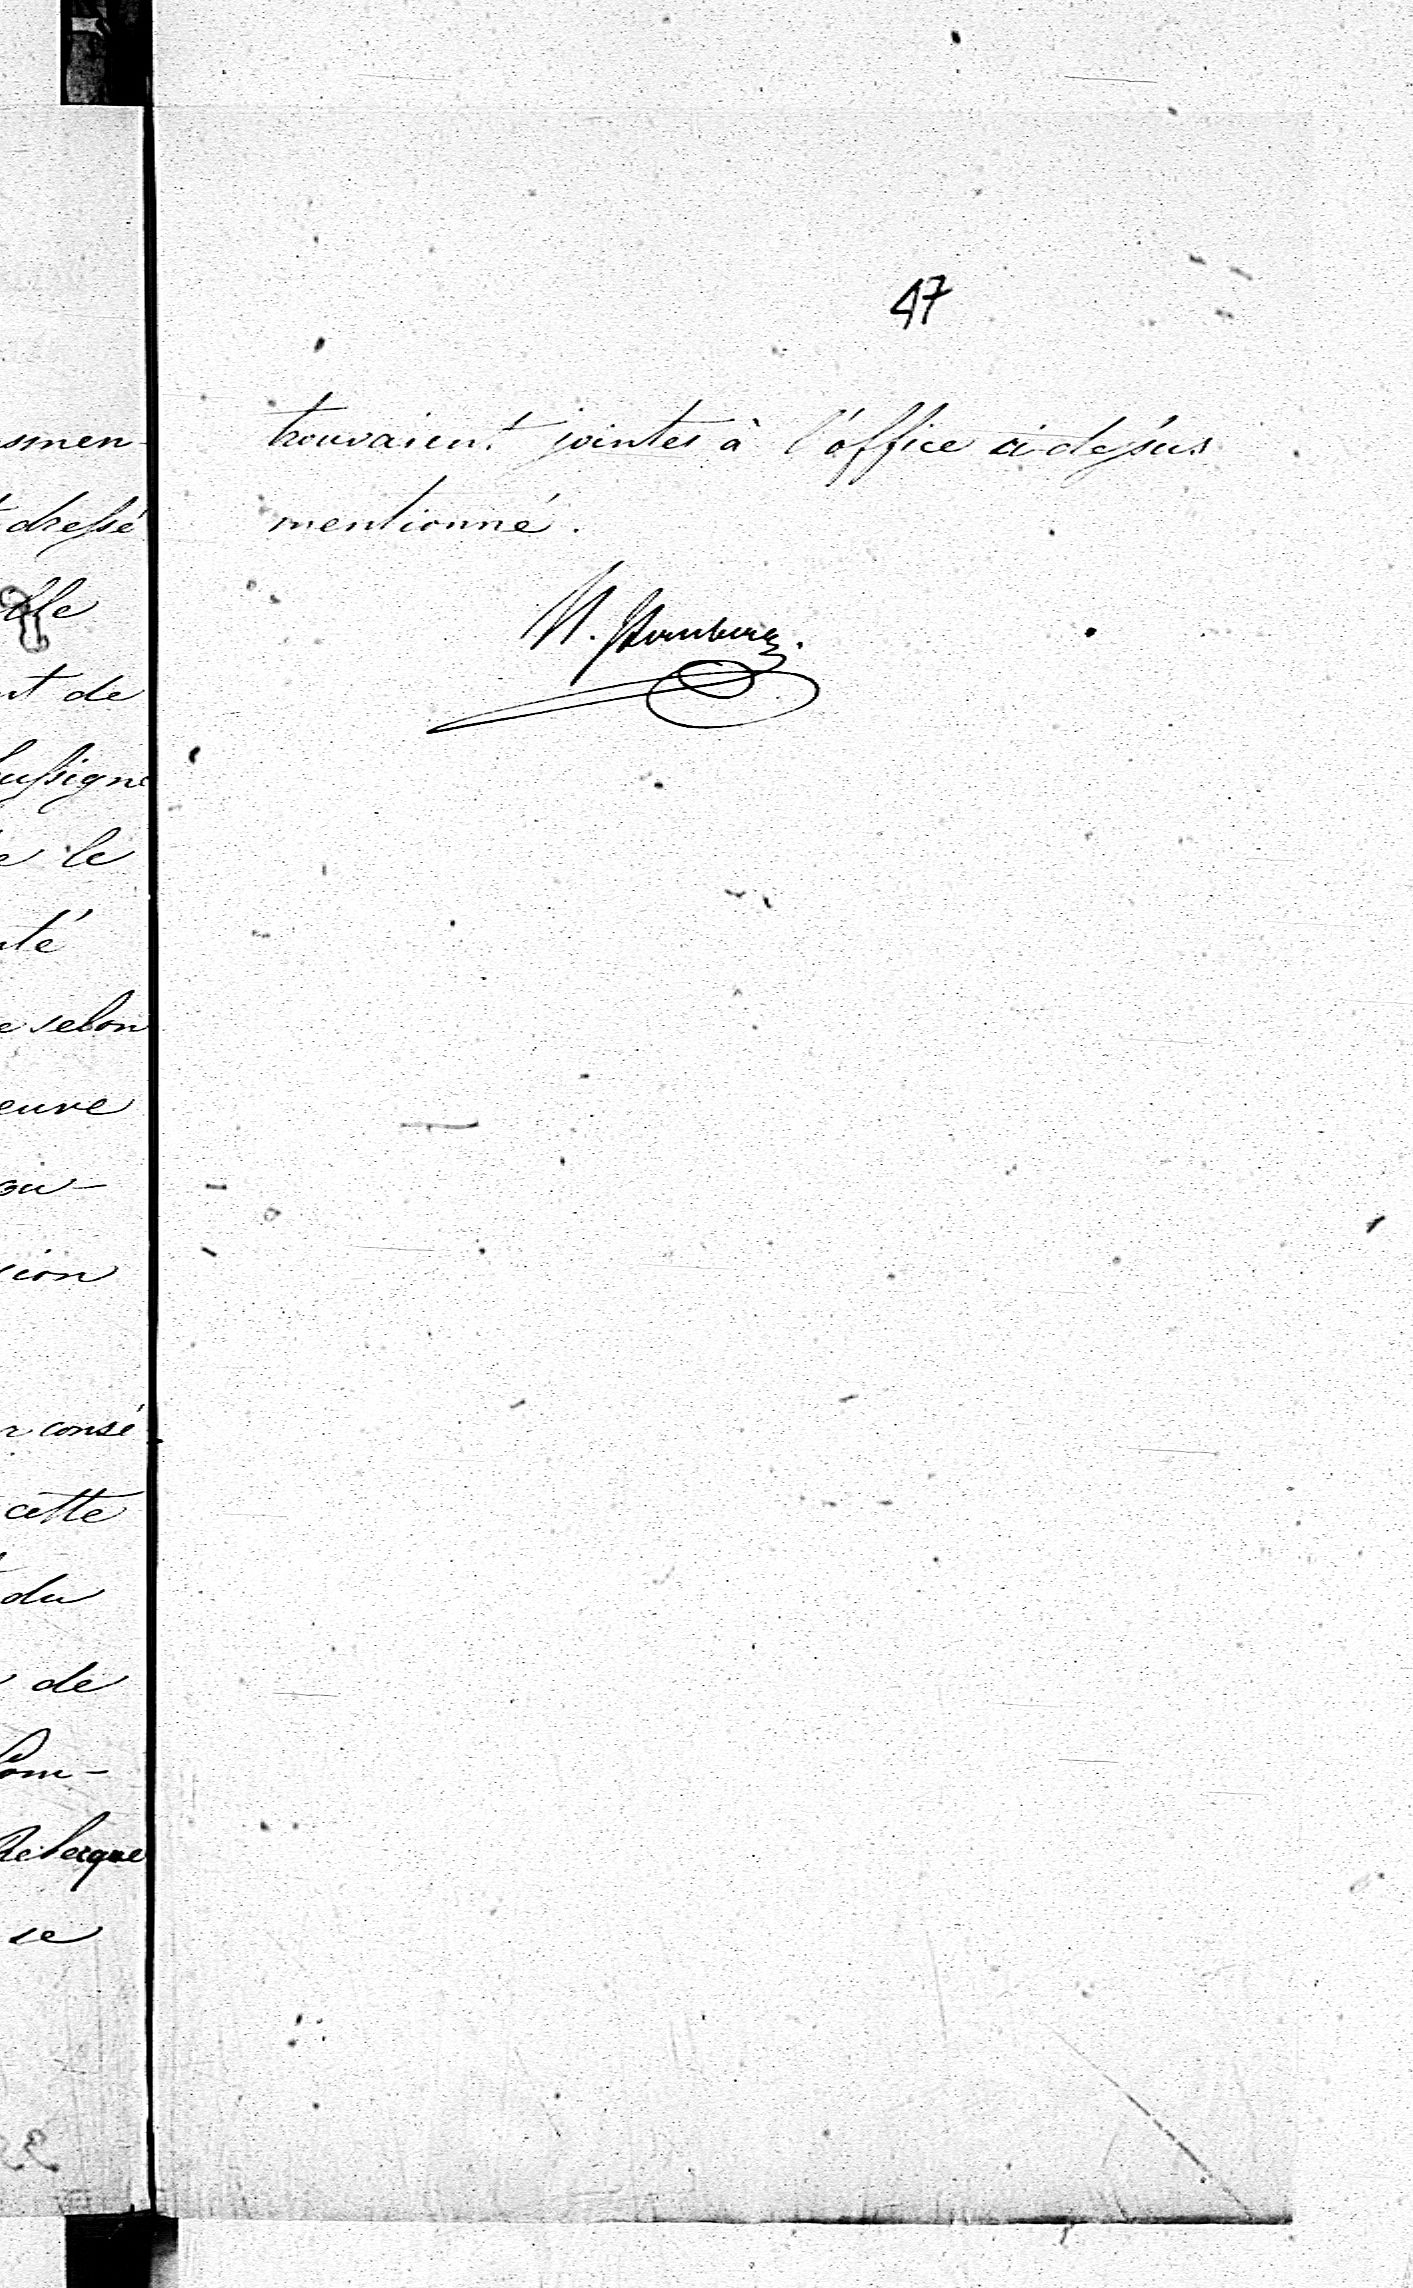 smen-
dressé
lle
nt de
sussigné
e le
nté
e selon
euve
ou-
sion
r consé
cette
du
de
Com-
se
47
trouvaient jointes à l'office ci-dessus
mentionné.